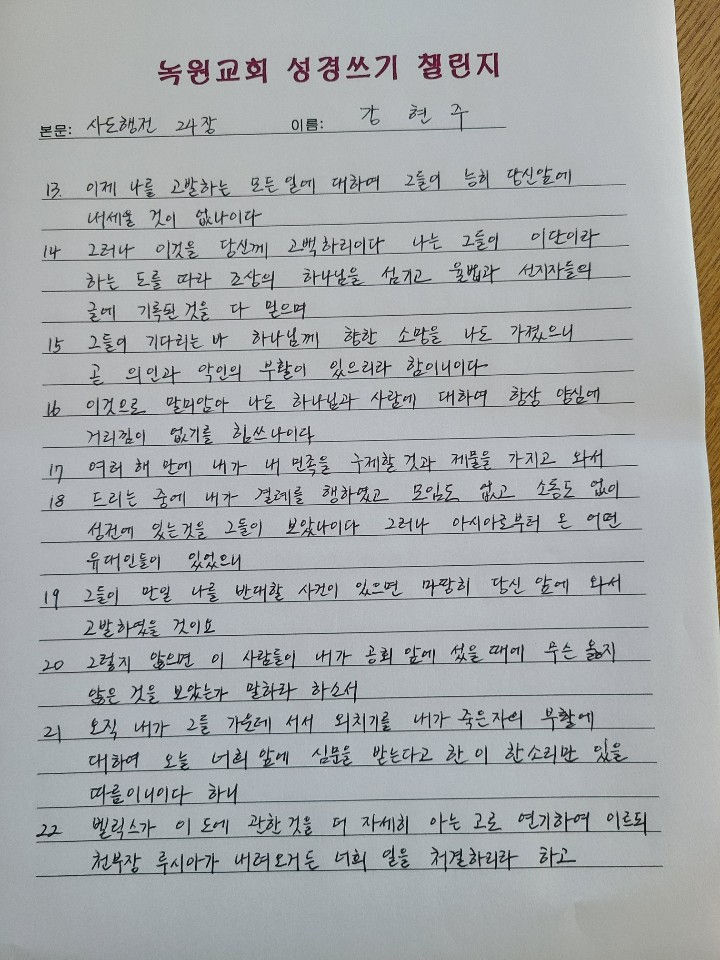 녹원교회 성경쓰기 챌린지
본문: 사도행전 24장 이름: 강현주
13. 이제 나를 고발하는 모든 일에 대하여 그들이 능히 당신앞에
내세울 것이 없나이다
14 그러나 이것을 당신께 고백하리이다 나는 그들이 이단이라
하는 도를 따라 조상의 하나님을 섬기고 율법과 선지자들의
글에 기록된 것을 다 믿으며
15 그들이 기다리는 바 하나님께 향한 소망을 나도 가졌으니
곧 의인과 악인의 부활이 있으리라 함이니이다
16 이것으로 말미암아 나도 하나님과 사람에 대하여 항상 양심에
거리낌이 없기를 힘쓰나이다
17 여러 해 만에 내가 내 민족을 구제할 것과 제물을 가지고 와서
18 드리는 중에 내가 결례를 행하였고 모임도 없고 소동도 없이
성전에 있는것을 그들이 보았나이다 그러나 아시아로부터 온 어떤
유대인들이 있었으니
19 그들이 만일 나를 반대할 사건이 있으면 마땅히 당신 앞에 와서
고발하였을 것이요
20 그렇지 않으면 이 사람들이 내가 공회 앞에 섰을 때에 무슨 옳지
않은 것을 보았는가 말하라 하소서
21 오직 내가 그들 가운데 서서 외치기를 내가 죽은자의 부활에
대하여 오늘 너희 앞에 심문을 받는다고 한 이 한소리만 있을
따름이니이다 하니
22 벨릭스가 이 도에 관한것을 더 자세히 아는 고로 연기하여 이르되
천부장 루시아가 내려오거든 너희 일을 처결하리라 하고